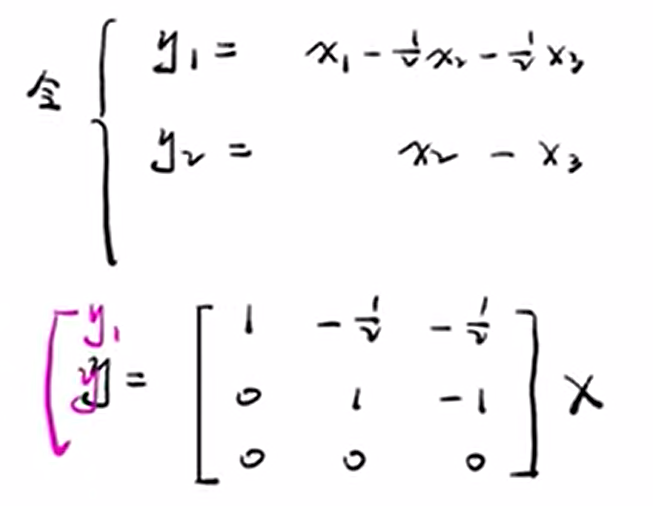 令 { y₁ = x₁ - ½x₂ - ½x₃
y₂ = x₂ - x₃
[ y₁
y = [ 1 -½ -½
0 1 -1
0 0 0 ] X